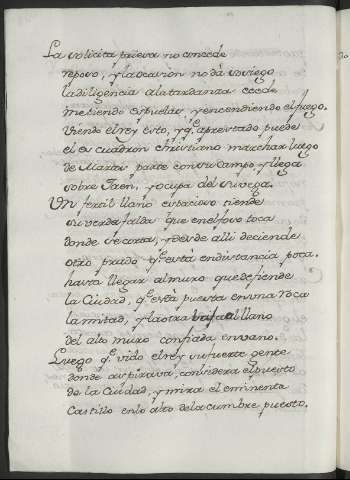 La solicita prieva no concede
reposo, y la ocasion no dà sosiego
la diligencia a la tardanza cede
metiendo espuelas, y encendiendo el fuego.
Viendo el rey esto, y q.e aprestado puede
el escuadron christiano marchar luego
de Martos parte con su Campo y llega
sobre Jaen, y ocupa del su vega.
Un fertil llano espacioso tiende
su verde falda que en el foso toca
donde se corta, y desde alli deciende
otro prado q.e està en distancia poca.
hasta llegar al muro que defiende
la Ciudad, q.e està puesta en una roca
la mitad, y la otra baja al llano
del alto muro confiada en vano.
Luego q.e vido el rey su fuerte gente
donde aspirava, considera el puesto
de la Ciudad, y mira el eminente
Castillo en lo alto de la cumbre puesto.